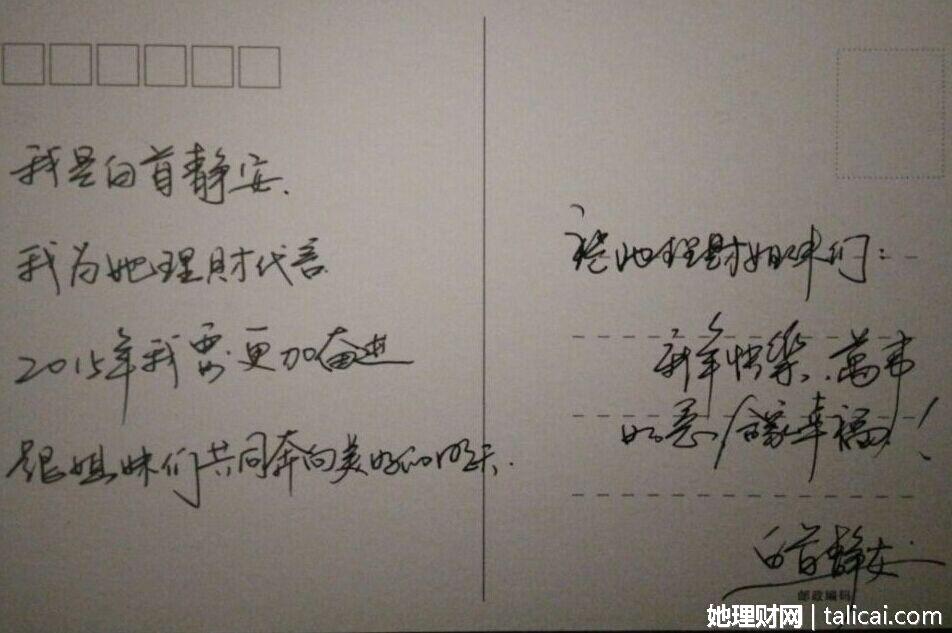 我是白首静安.
我为她理财代言
2015年我要更加奋进
跟姐妹们共同奔向美好的明天.
祝她理财姐妹们:
新年快樂、萬事
如意/合家幸福!
白首静安
邮政编码
她理财网 | talicai.com